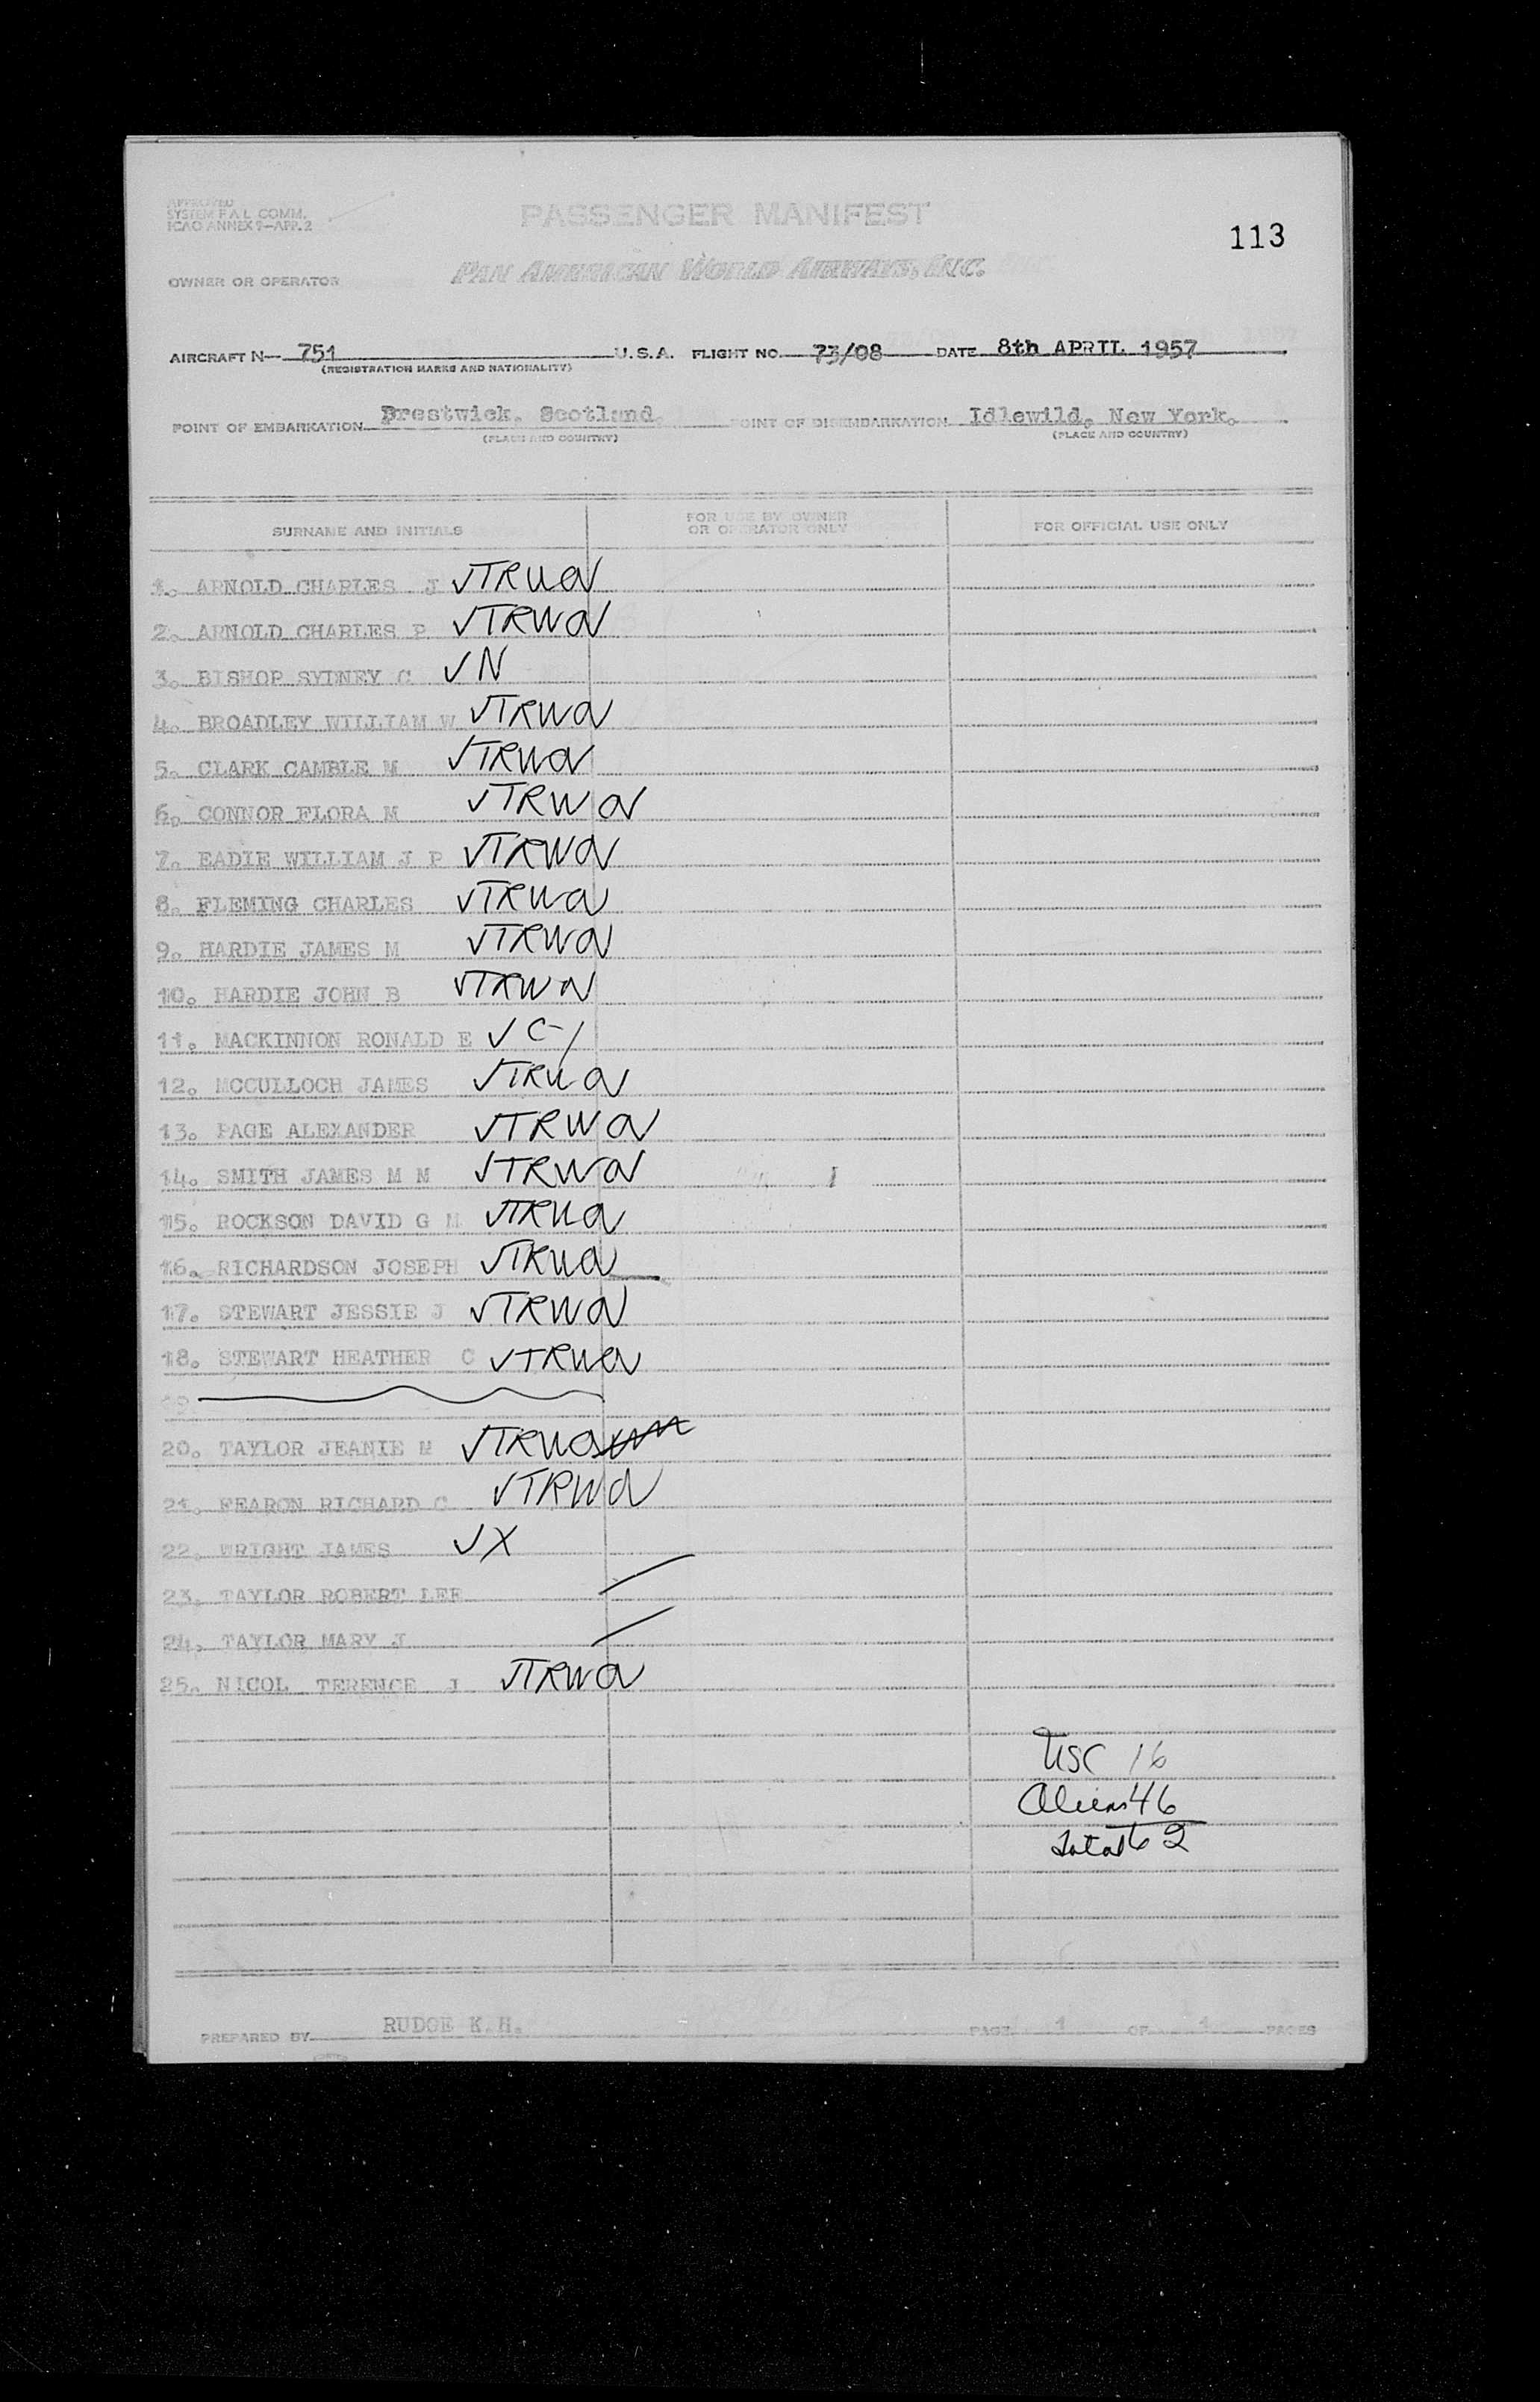 APPROVED
SYSTEM F A L COMM.
ICAO ANNEX 9-APP. 2
PASSENGER MANIFEST
113
OWNER OR OPERATOR PAN AMERICAN WORLD AIRWAYS, INC.
AIRCRAFT N- 751 U.S.A. FLIGHT NO. 73/08 DATE 8th APRIL 1957
(REGISTRATION MARKS AND NATIONALITY)
POINT OF EMBARKATION Prestwick. Scotland. POINT OF DISEMBARKATION Idlewild, New York.
(PLACE AND COUNTRY) (PLACE AND COUNTRY)
SURNAME AND INITIALS FOR USE BY OWNER OR OPERATOR ONLY FOR OFFICIAL USE ONLY
1. ARNOLD CHARLES J √TRWA
2. ARNOLD CHARLES P √TRWA
3. BISHOP SYDNEY C √ N
4. BROADLEY WILLIAM W √TRWA
5. CLARK CAMBLE M √TRWA
6. CONNOR FLORA M √TRWA
7. EADIE WILLIAM J P √TRWA
8. FLEMING CHARLES √TRWA
9. HARDIE JAMES M √TRWA
10. HARDIE JOHN B √TRWA
11. MACKINNON RONALD E √ C-1
12. MCCULLOCH JAMES √TRWA
13. PAGE ALEXANDER √TRWA
14. SMITH JAMES M N √TRWA
15. ROCKSON DAVID G M √TRWA
16. RICHARDSON JOSEPH √TRWA
17. STEWART JESSIE J √TRWA
18. STEWART HEATHER C √TRWA
19.
20. TAYLOR JEANIE M √TRWA
21. FEARON RICHARD C √TRWA
22. WRIGHT JAMES √ X
23. TAYLOR ROBERT LEE
24. TAYLOR MARY J
25. NICOL TERENCE J √TRWA
USC 16
Aliens 46
Total 62
PREPARED BY RUDGE K.H. PAGE 1 OF 1 PAGES